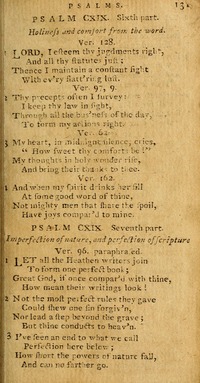 PSALMS. 131
PSALM CXIX. Sixth part.
Holiness and comfort from the word.
Ver. 128.
1 LORD, I esteem thy judgments right,
And all thy statutes just;
Thence I maintain a constant fight
With ev'ry flatt'ring lust.
Ver. 97, 9.
2 Thy precepts often I survey;
I keep thy law in sight,
Through all the bus'ness of the day,
To form my actions right.
Ver. 62.
3 My heart, in midnight silence, cries,
"How sweet thy comforts be!"
My thoughts in holy wonder rise,
And bring their thanks to thee.
Ver. 162.
4 And when my spirit drinks her fill
At some good word of thine,
Not mighty men that share the spoil,
Have joys compar'd to mine.
PSALM CXIX. Seventh part.
Imperfection of nature, and perfection of scripture
Ver. 96. paraphrased.
1 LET all the Heathen writers join
To form one perfect book;
Great God, if once compar'd with thine,
How mean their writings look!
2 Not the most perfect rules they gave
Could shew one sin forgiv'n,
Nor lead a step beyond the grave;
But thine conducts to heav'n.
3 I've seen an end to what we call
Perfection here below;
How short the powers of nature fall,
And can no farther go.